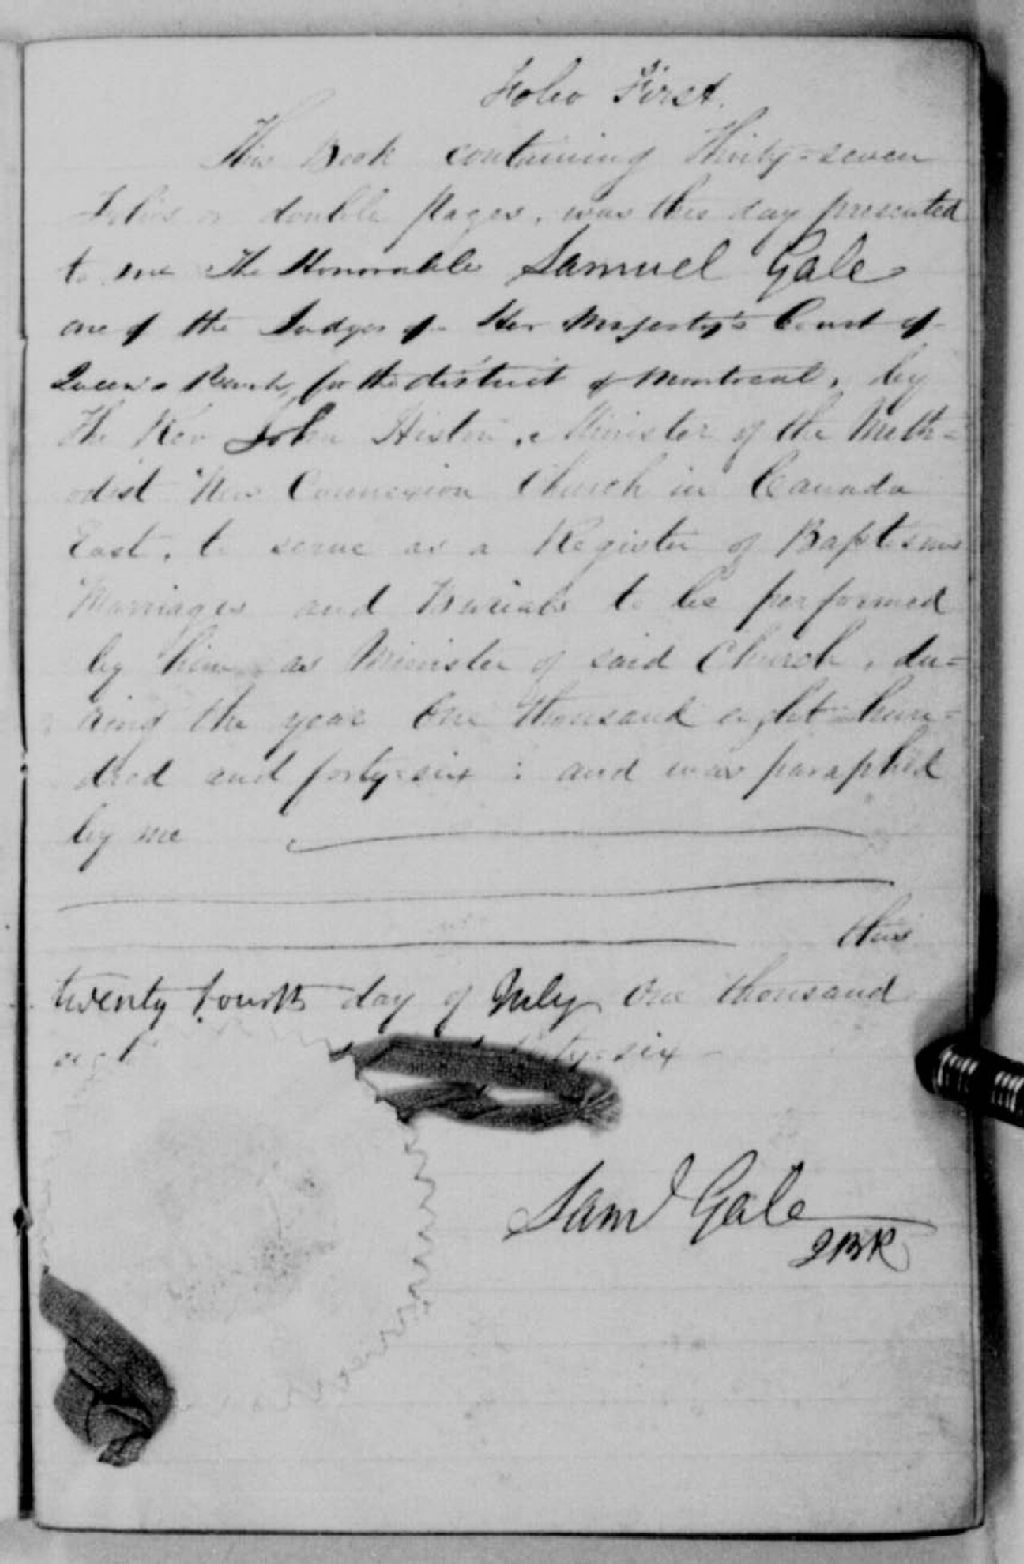 Folio First.
This Book containing Thirty-seven
Folios or double pages, was this day presented
to me The Honorable Samuel Gale
one of the Judges of Her Majesty's Court of
Queen's Bench, for the district of Montreal, by
the Rev John Histon, Minister of the Meth=
odist New Connexion Church in Canada
East, to serve as a Register of Baptisms
Marriages and Burials to be performed
by him as Minister of said Church, du=
ring the year One thousand eight hun=
dred and forty-six : and was paraphed
by me
this
twenty fourth day of July One thousand
six
Saml Gale
JBR